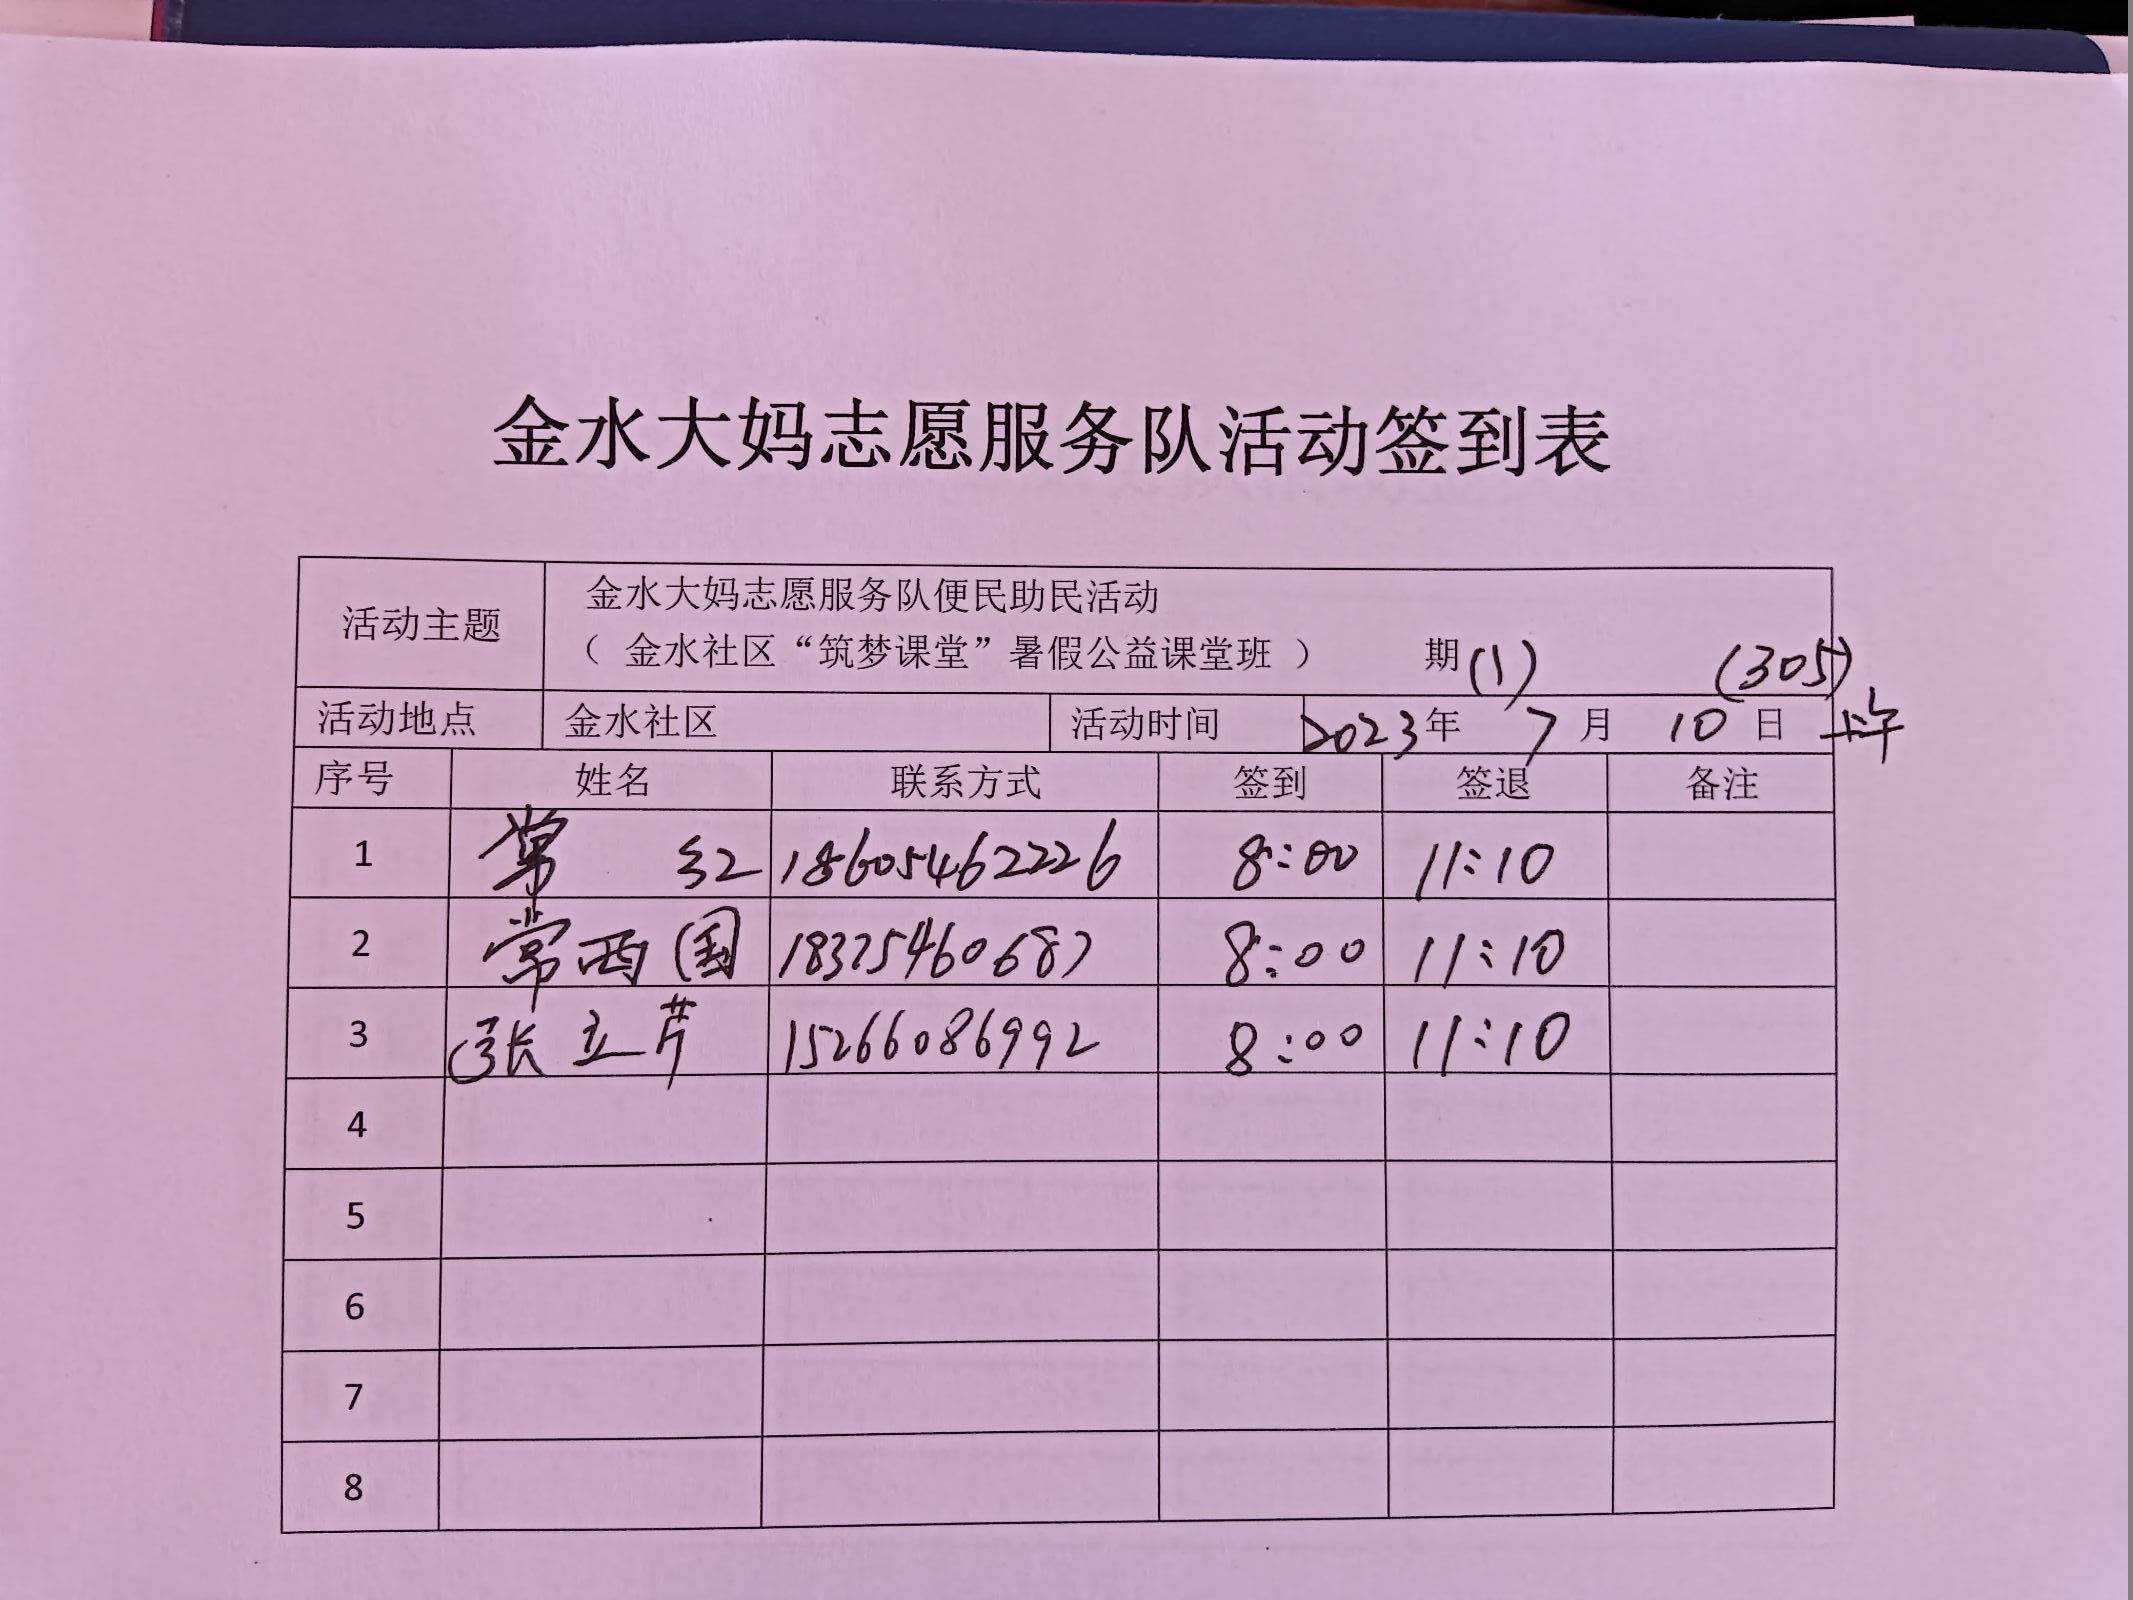 金水大妈志愿服务队活动签到表
活动主题 金水大妈志愿服务队便民助民活动
（ 金水社区“筑梦课堂”暑假公益课堂班 ） 期(1) (305)
活动地点 金水社区 活动时间 2023年 7月 10日 上午
序号 姓名 联系方式 签到 签退 备注
1 常红 18605462226 8:00 11:10
2 常西国 18375460687 8:00 11:10
3 张立芹 15266086992 8:00 11:10
4
5
6
7
8